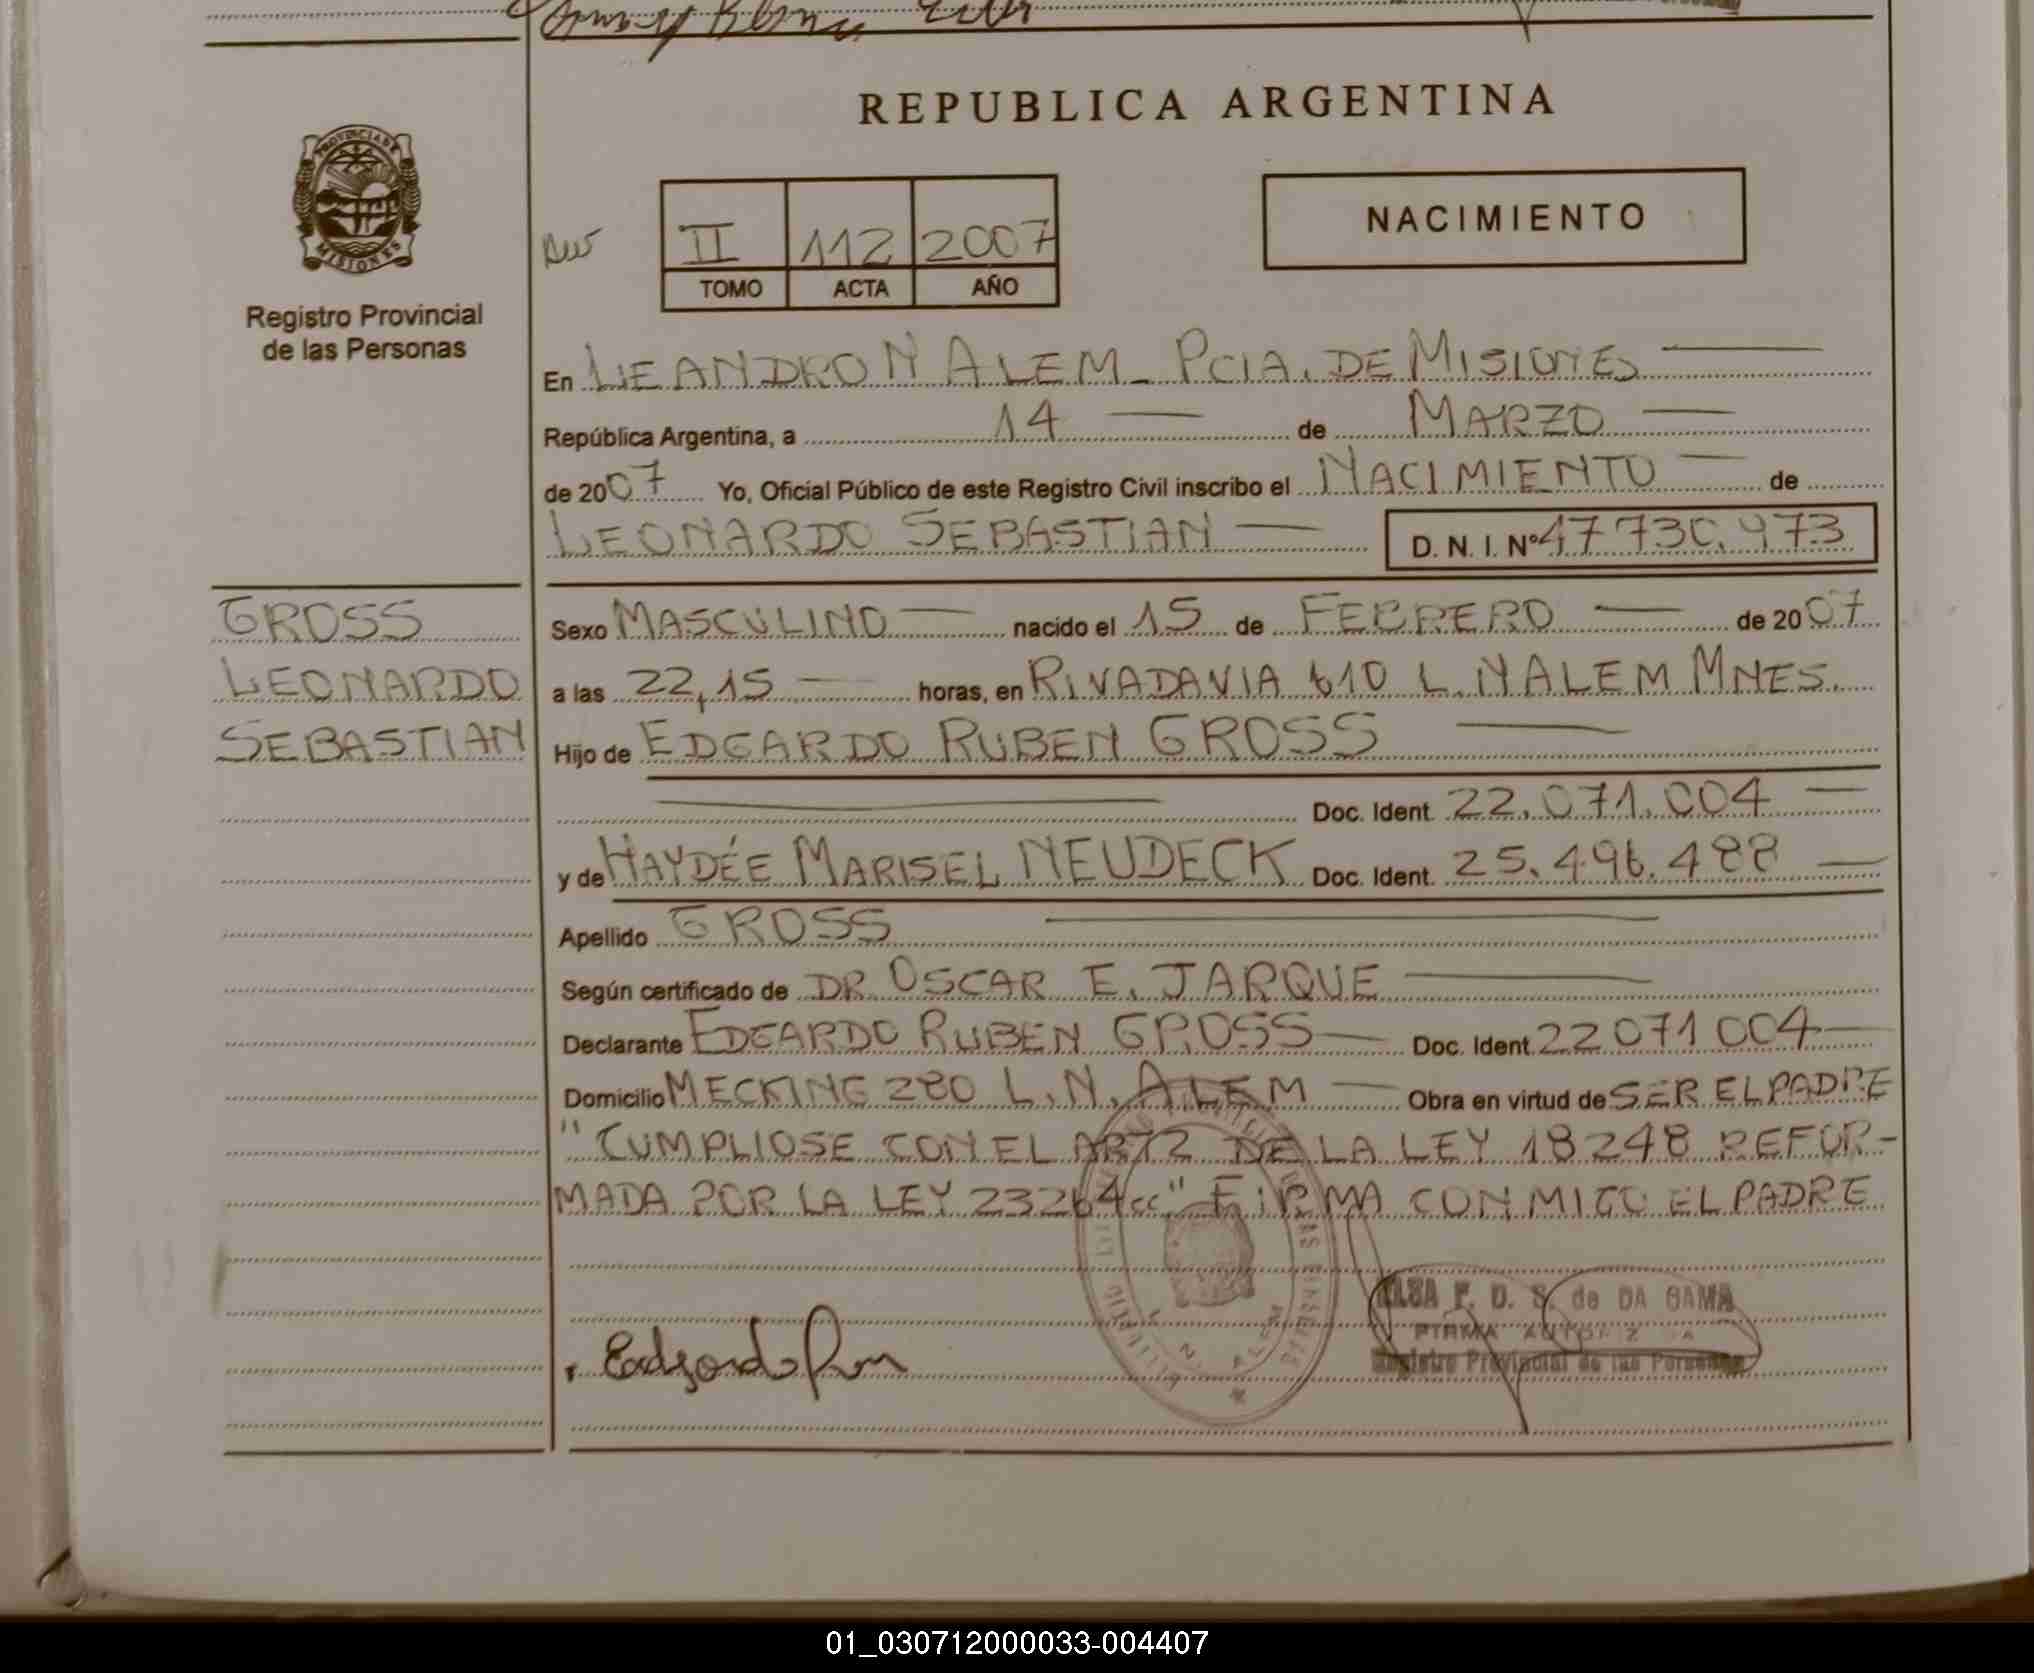 REPUBLICA ARGENTINA
PROVINCIA DE
MISIONES
Registro Provincial
de las Personas
II 112 2007
TOMO ACTA AÑO
NACIMIENTO
En LEANDRO N ALEM - PCIA. DE MISIONES
República Argentina, a 14 de MARZO
de 2007 Yo, Oficial Público de este Registro Civil inscribo el NACIMIENTO de
LEONARDO SEBASTIAN D. N. I. Nº 47 730.473
GROSS
LEONARDO
SEBASTIAN
Sexo MASCULINO nacido el 15 de FEBRERO de 2007
a las 22,15 horas, en RIVADAVIA 610 L. N ALEM MNES.
Hijo de EDGARDO RUBEN GROSS
Doc. Ident. 22.071.004
y de HAYDÉE MARISEL NEUDECK Doc. Ident. 25.496.488
Apellido GROSS
Según certificado de DR OSCAR E. JARQUE
Declarante EDGARDO RUBEN GROSS Doc. Ident. 22 071 004
Domicilio MECKING 280 L. N. ALEM Obra en virtud de SER EL PADRE
"CUMPLIOSE CON EL ART2 DE LA LEY 18248 REFOR-
MADA POR LA LEY 23264cc" FIRMA CONMIGO EL PADRE
ELSA F. D. S. de DA GAMA
FIRMA AUTORIZADA
Registro Provincial de las Personas
L. N. ALEM
01_030712000033-004407